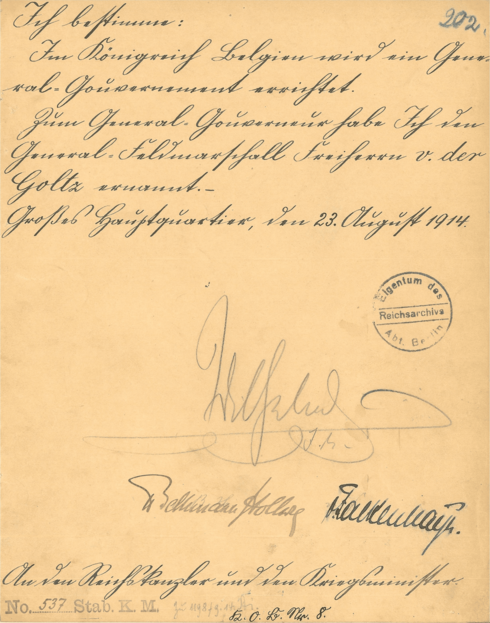 202.
Ich bestimme:
Im Königreich Belgien wird ein Gene-
ral-Gouvernement errichtet.
Zum General-Gouverneur habe Ich den
General-Feldmarschall Freiherrn v. der
Goltz ernannt.-
Großes Hauptquartier, den 23. August 1914.
Eigentum des
Reichsarchivs
Abt. Berlin
Wilhelm
I. R.
v Bethmann Hollweg
v. Falkenhayn.
An den Reichskanzler und den Kriegsminister.
No. 537 Stab. K. M.
K. O. B. Nr. 8.